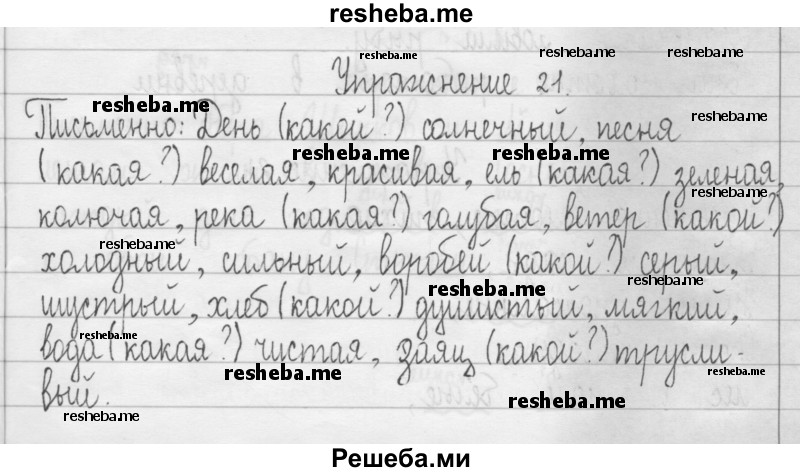 resheba.me
resheba.me resheba.me resheba.me
Упражнение 21.
resheba.me resheba.me
Письменно: День (какой?) солнечный, песня
resheba.me resheba.me
(какая?) веселая, красивая, ель (какая?) зеленая,
resheba.me
колючая, река (какая?) голубая, ветер (какой?)
resheba.me
холодный, сильный, воробей (какой?) серый,
resheba.me
шустрый, хлеб (какой?) душистый, мягкий,
resheba.me
вода (какая?) чистая, заяц (какой?) трусли-
resheba.me resheba.me
вый.
resheba.me resheba.me
Решеба.ми